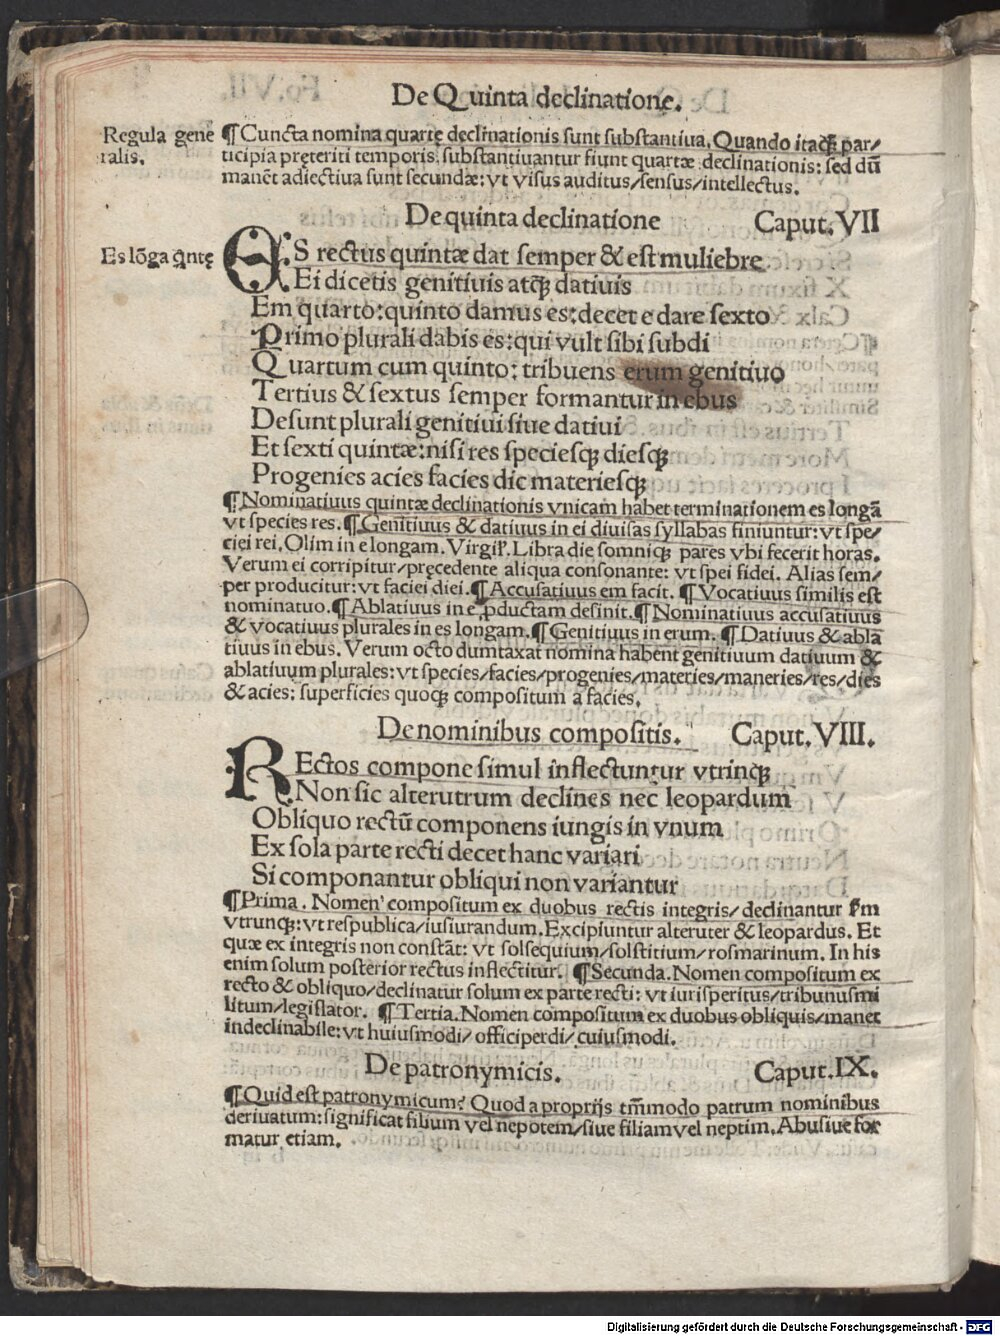 De Quinta declinatione.
Regula gene
ralis.
¶Cuncta nomina quartę declinationis sunt substantiua. Quando itaqꝫ par/
ticipia pręteriti temporis substantiuantur fiunt quartæ declinationis: sed dū
manēt adiectiua sunt secundæ: vt visus auditus/sensus/intellectus.
De quinta declinatione Caput.VII
Es lōga q̄ntę
ES rectus quintæ dat semper & est muliebre
Ei dicetis genitiuis atqꝫ datiuis
Em quarto: quinto damus es: decet e dare sexto
Primo plurali dabis es: qui vult sibi subdi
Quartum cum quinto: tribuens erum genitiuo
Tertius & sextus semper formantur in ebus
Desunt plurali genitiui siue datiui
Et sexti quintæ: nisi res speciesqꝫ diesqꝫ
Progenies acies facies dic materiesqꝫ
¶Nominatiuus quintæ declinationis vnicam habet terminationem es longā
vt species res. ¶Genitiuus & datiuus in ei diuisas syllabas finiuntur: vt spe/
ciei rei. Olim in e longam. Virgil'. Libra die somniqꝫ pares vbi fecerit horas.
Verum ei corripitur/pręcedente aliqua consonante: vt spei fidei. Alias sem/
per producitur: vt faciei diei. ¶Accusatiuus em facit. ¶Vocatiuus similis est
nominatuo. ¶Ablatiuus in e ꝓductam desinit. ¶Nominatiuus accusatiuus
& vocatiuus plurales in es longam. ¶Genitiuus in erum. ¶Datiuus & abla
tiuus in ebus. Verum octo dumtaxat nomina habent genitiuum datiuum &
ablatiuum plurales: vt species/facies/progenies/materies/maneries/res/dies
& acies: superficies quoqꝫ compositum a facies.
De nominibus compositis. Caput.VIII.
REctos compone simul inflectuntur vtrinqꝫ
Non sic alterutrum declines nec leopardum
Obliquo rectū componens iungis in vnum
Ex sola parte recti decet hanc variari
Si componantur obliqui non variantur
¶Prima. Nomen compositum ex duobus rectis integris/declinantur ẜm
vtrunqꝫ: vt respublica/iusiurandum. Excipiuntur alteruter & leopardus. Et
quæ ex integris non constāt: vt solsequium/solstitium/rosmarinum. In his
enim solum posterior rectus inflectitur. ¶Secunda. Nomen compositum ex
recto & obliquo/declinatur solum ex parte recti: vt iurisperitus/tribunusmi
litum/legislator. ¶Tertia. Nomen compositum ex duobus obliquis/manet
indeclinabile: vt huiusmodi/officiperdi/cuiusmodi.
De patronymicis. Caput.IX.
¶Quid est patronymicum? Quod a proprijs tm̄modo patrum nominibus
deriuatum: significat filium vel nepotem/siue filiam vel neptim. Abusiue for
matur etiam.
Digitalisierung gefördert durch die Deutsche Forschungsgemeinschaft - DFG